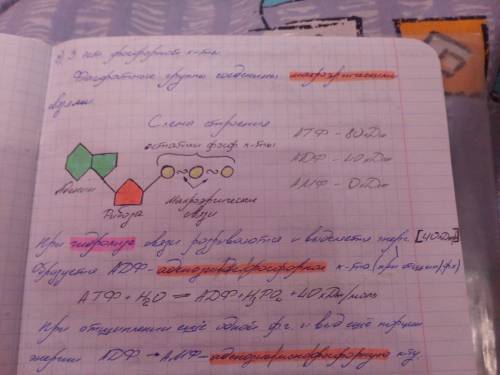 3) 3 ост. фосфорной к-ты.
Фосфатные группы соединены макроэргическими
связями.
Схема строения
остатки фосф к-ты
АТФ - 80 кДж
АДФ - 40 кДж
АМФ - 0 кДж
Аденин
Рибоза
Макроэргические
связи
При гидролизе связи разрываются и выделяется энерг. [40кДж]
Образуется АДФ - аденозиндифосфорная к-та (при отщеп 1 фг)
АТФ + H2O = АДФ + H3PO4 + 40 кДж/моль
При отщеплении ещё одной фг. и выд ещё порции
энергии АДФ → АМФ - аденозинмонофосфорную к-ту